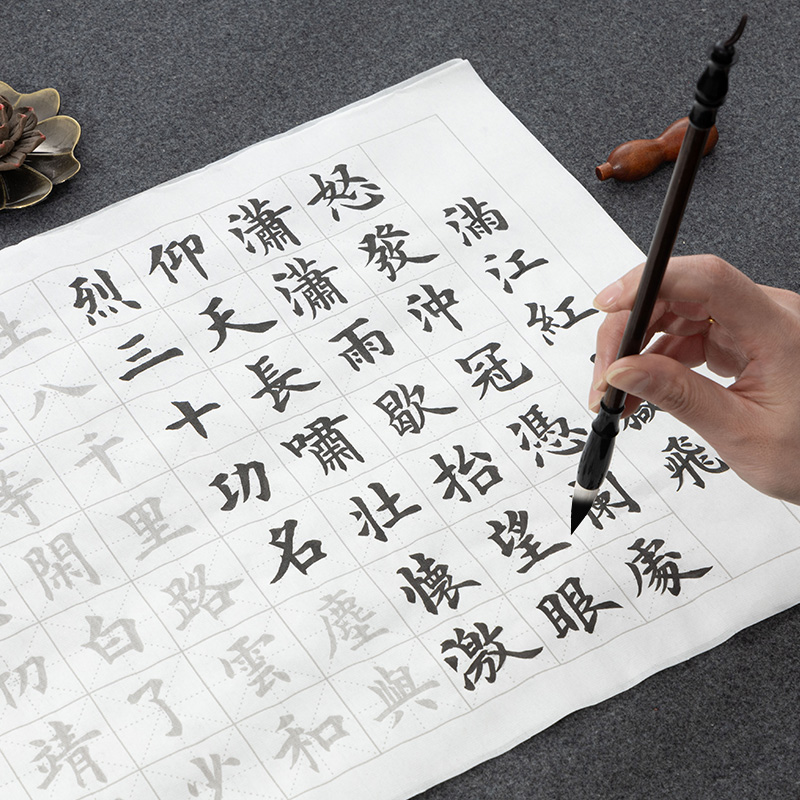 滿江紅飛
怒發沖冠憑闌處
瀟瀟雨歇抬望眼
仰天長嘯壯懷激
烈三十功名塵與
土八千里路雲和
等閑白了少
切靖